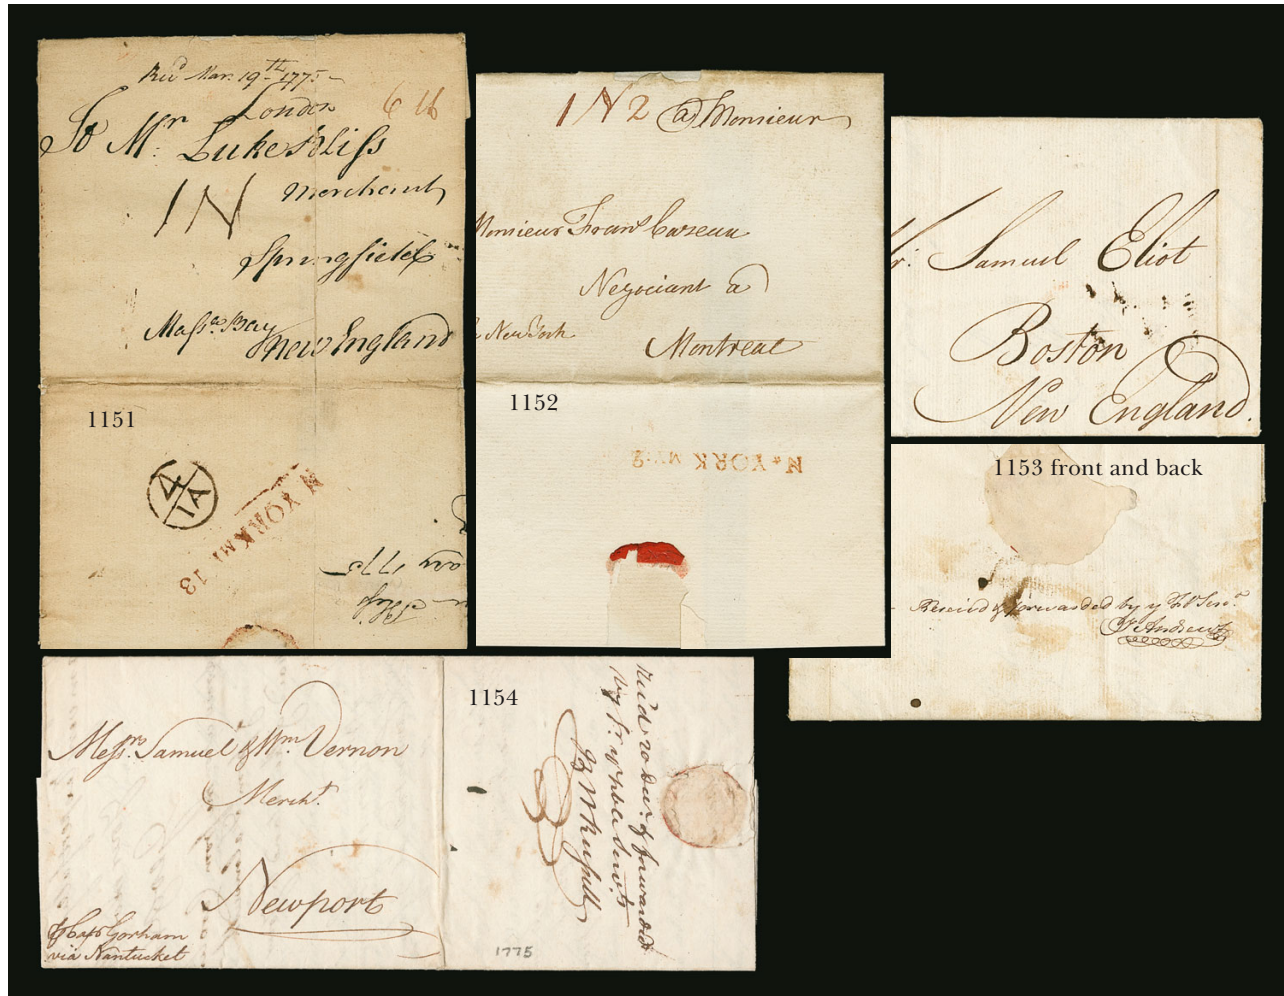 Recd Mar. 19th 1775
London
6 16
To Mr. Luke Bliss
1N
Merchant
Springfield
Massa. Bay
New England
1151
4
IA
N YORK
13
1775
1N2
a Monsieur
Monsieur Frans Cazeau
Negociant a
New York
Montreal
1152
N*YORK MY:2
Mr. Samuel Eliot
Boston
New England.
1153 front and back
Receivd & forwarded by yr Hl Servt
Andrews
Messrs. Samuel & Wm Vernon
Mercht.
Newport
Capt Gorham
via Nantucket
1154
forwarded
by
1775